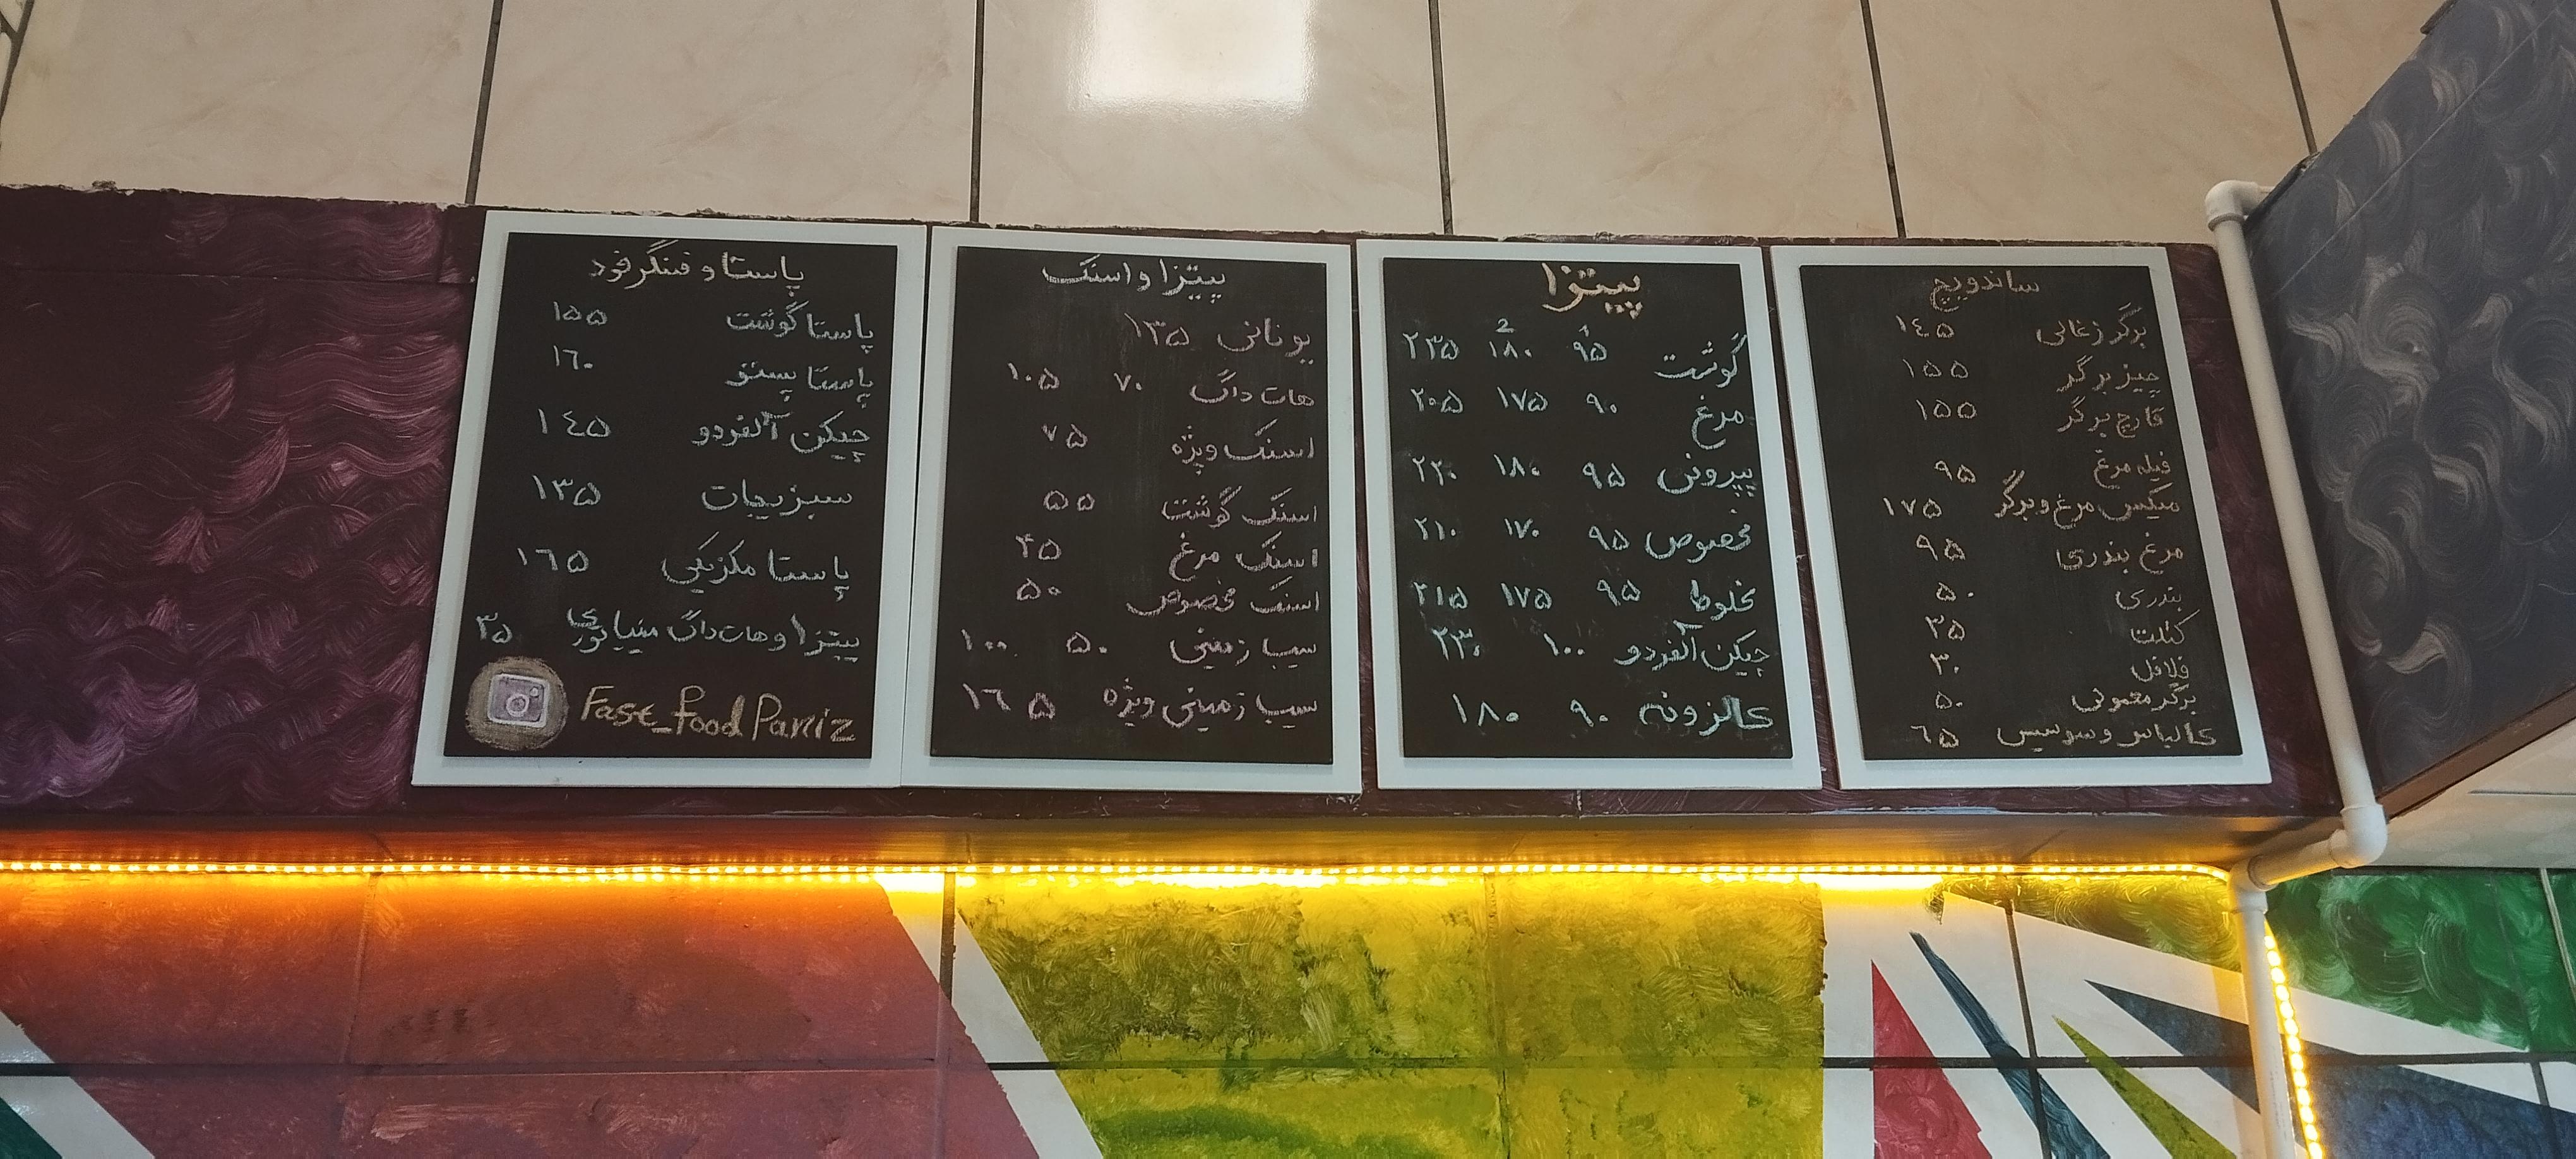 ساندویچ
برگر زغالی ۱۴۵
چیز برگر ۱۵۵
قارچ برگر ۱۵۵
فیله مرغ ۹۵
میکس مرغ و برگر ۱۷۵
مرغ بندری ۹۵
بندری ۵۰
کتلت ۳۵
فلافل ۳۰
برگر معمولی ۵۰
کالباس و سوسیس ۶۵
پیتزا
1 2
گوشت ۹۵ ۱۸۰ ۲۳۵
مرغ ۹۰ ۱۷۵ ۲۰۵
پپرونی ۹۵ ۱۸۰ ۲۲۰
مخصوص ۹۵ ۱۷۰ ۲۱۰
مخلوط ۹۵ ۱۷۵ ۲۱۵
چیکن آلفردو ۱۰۰ ۲۳۰
کالزونه ۹۰ ۱۸۰
پیتزا و اسنک
یونانی ۱۳۵
هات داگ ۷۰ ۱۰۵
اسنک ویژه ۷۵
اسنک گوشت ۵۵
اسنک مرغ ۴۵
اسنک مخصوص ۵۰
سیب زمینی ۵۰ ۱۰۰
سیب زمینی ویژه ۱۶۵
پاستا و فینگر فود
پاستا گوشت ۱۵۵
پاستا پستو ۱۶۰
چیکن آلفردو ۱۴۵
سبزیجات ۱۳۵
پاستا مکزیکی ۱۶۵
پیتزا و هات داگ مینیاتوری ۳۵
Fast_food Parriz